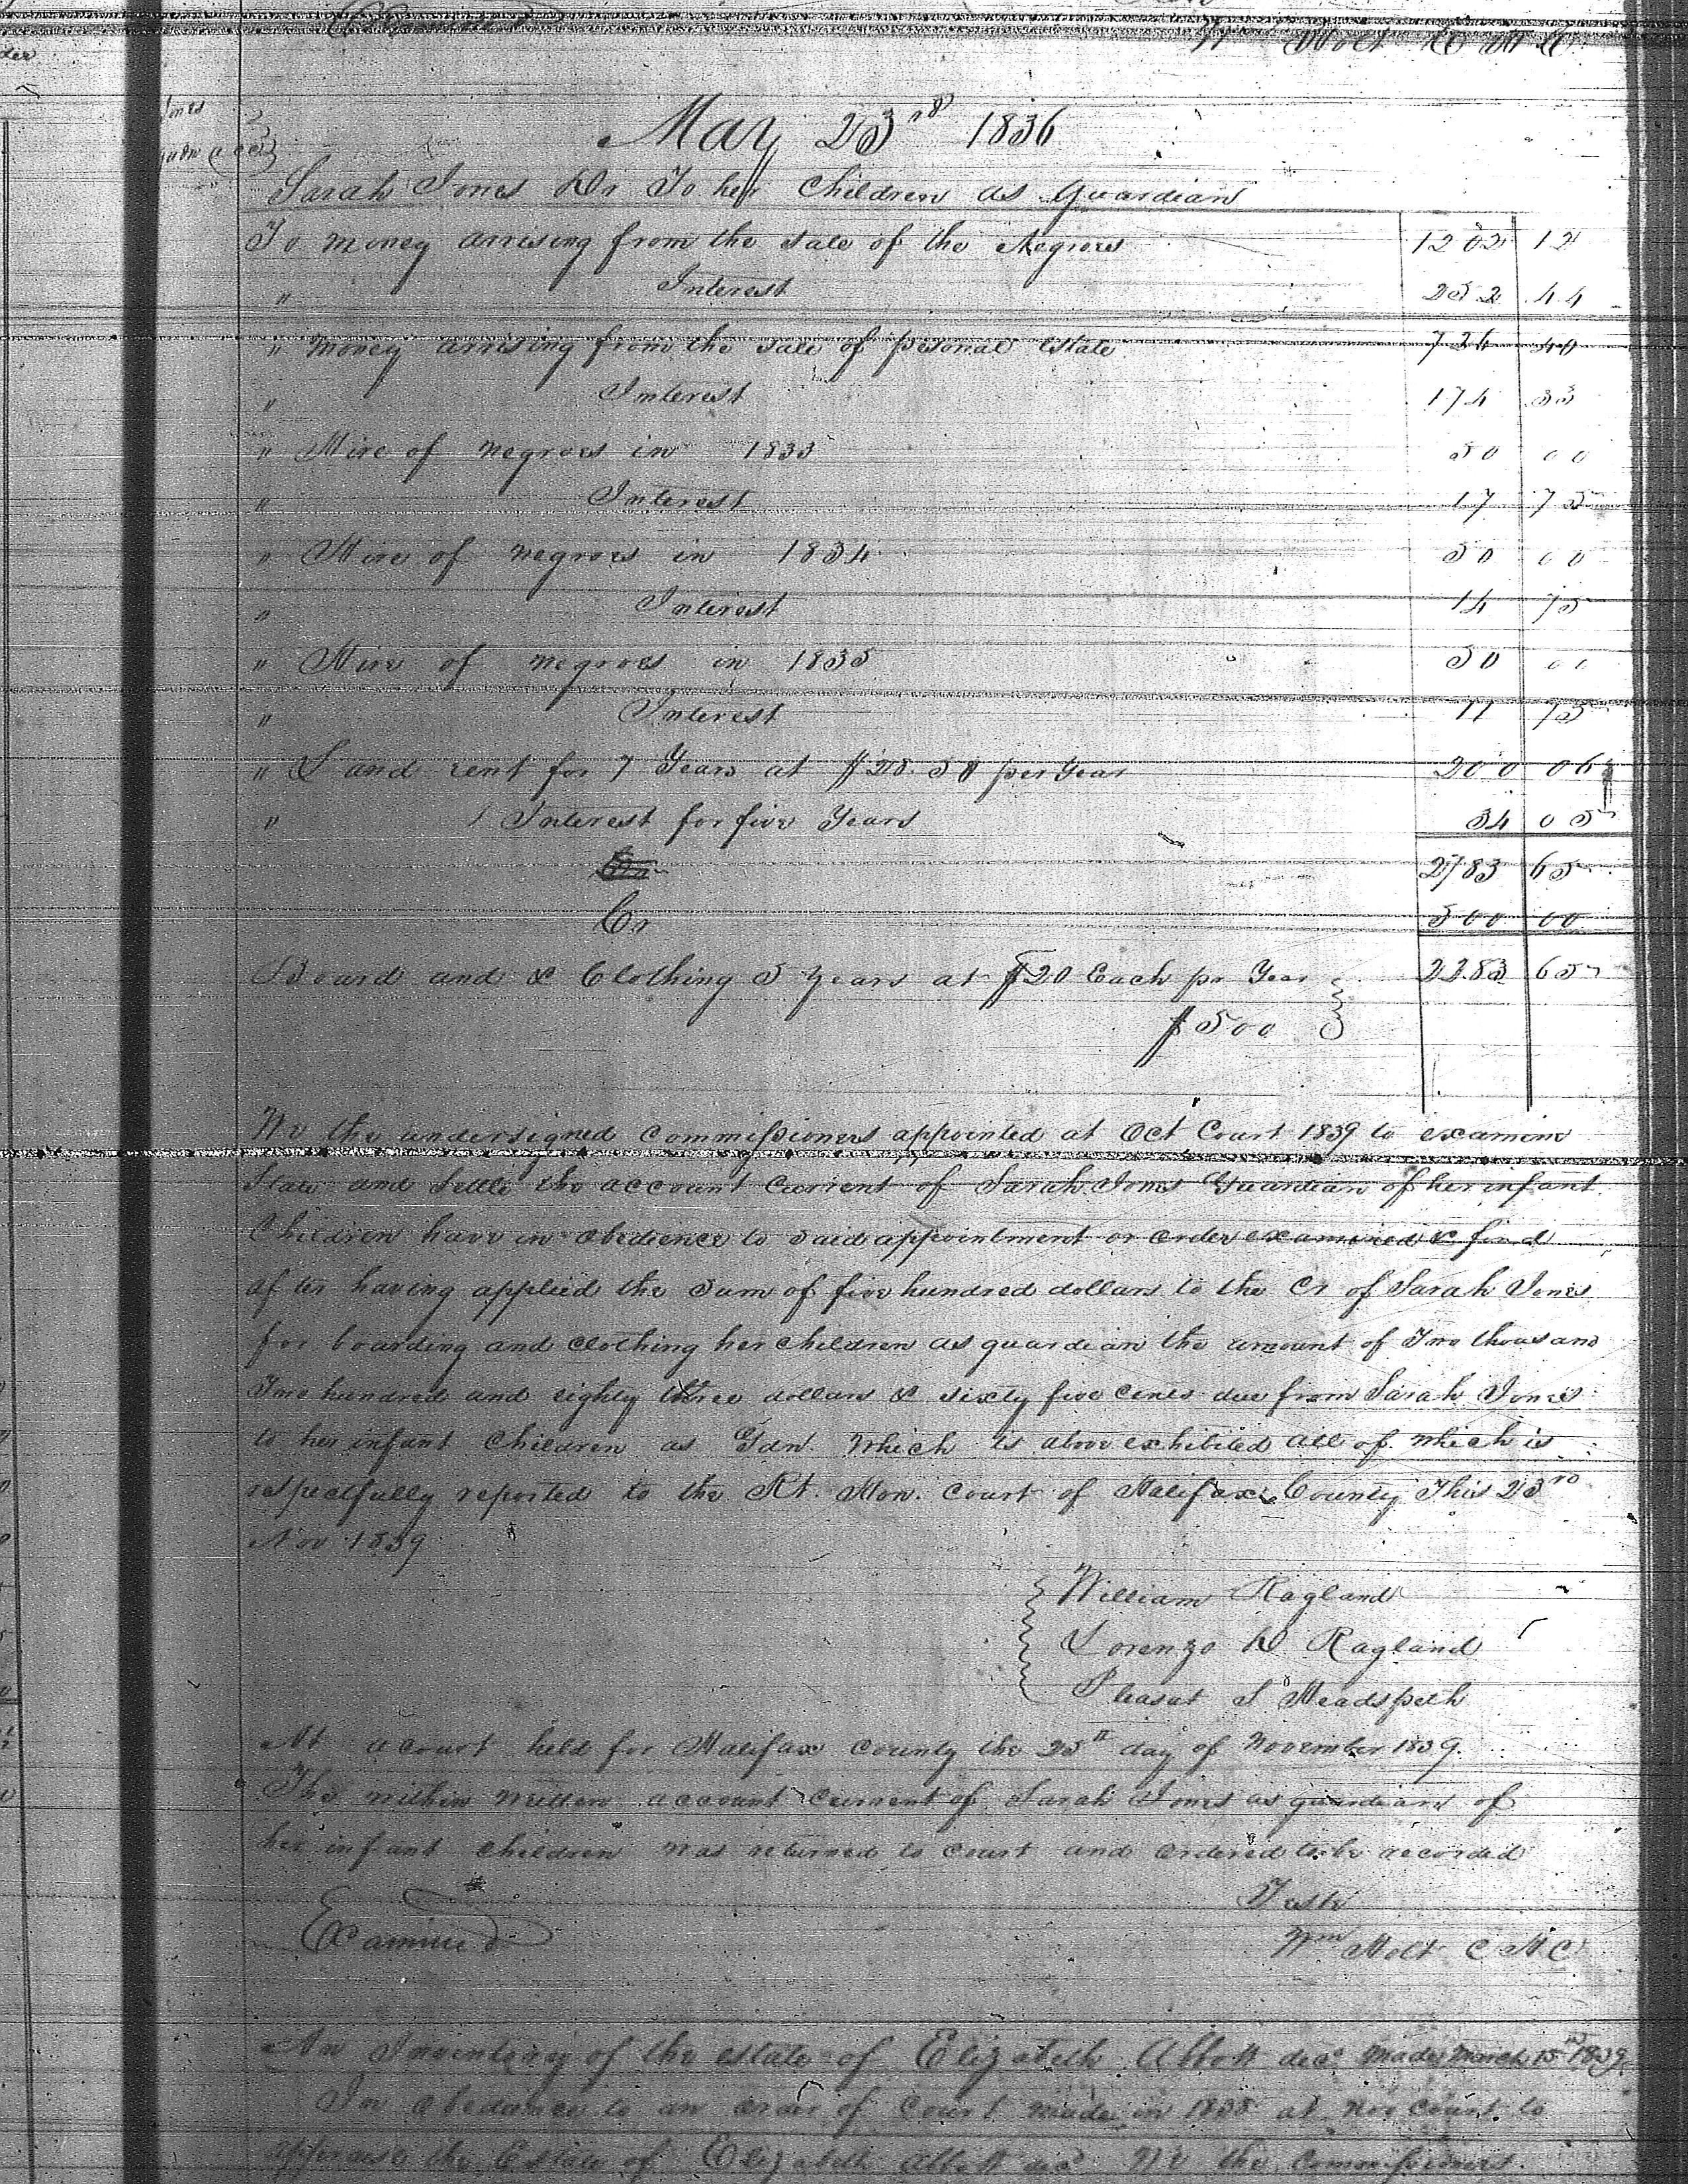 Wm Holt C H C
Jones
Guadn acct
May 23rd 1836
Sarah Jones Dr To her Children as Guardian
To money arrising from the sale of the Negroes 1202 12
" Interest 252 44
" money arrising from the sale of pesonal estate 726 40
" Interest 174 33
" Hire of negroes in 1833 50 00
" Interest 17 75
" Hire of negroes in 1834 50 00
" Interest 14 75
" Hire of negroes in 1835 50 00
" Interest 11 75
" Land rent for 7 Years at $28.58 per Year 200 06
" Interest for five Years 34 05
2783 65
Cr 500 00
Board and & Clothing 5 years at $20 Each pr Year 2283 65
$500
We the undersigned commissioners appointed at Oct Court 1839 to examine
State and Settle the account Current of Sarah Jones Guardian of her infant
Children have in obedience to said appointment or order examined & find
after having applied the Sum of five hundred dollars to the Cr of Sarah Jones
for boarding and clothing her children as guardian the amount of Two thousand
Two hundred and eighty three dollars & sixty five cents due from Sarah Jones
to her infant Children as Gdn. which is above exhibited all of which is
respectfully reported to the Rt. Hon. Court of Halifax County This 23rd
Nov 1839
William Ragland
Lorenzo D Ragland
Pleasat S Headspeth
At a court held for Halifax County the 25th day of November 1839.
The within written account current of Sarah Jones as guardian of
her infant children was returned to court and ordered to be recorded
Teste
Examined Wm Holt C H C
An Inventory of the estate of Elizabeth Abbott decd made March 15th 1839
In obedance to an order of Court made in 1838 at Nov court to
appraise the Estate of Elizabeth Abbott decd We the Commissioners